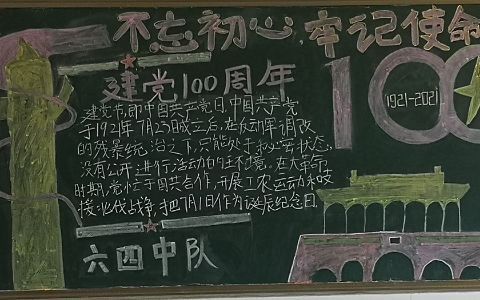 不忘初心,牢记使命
建党100周年
100
1921-2021
建党节,即中国共产党日,中国共产党
于1921年7月23日成立后,在反动军调改
的残景统治之下,只能处于秘密状态,
没有公开进行活动的环境。在大革命
时期,党忙于国共合作,开展工农运动和支
援北伐战争,把7月1日作为诞辰纪念日。
六四中队